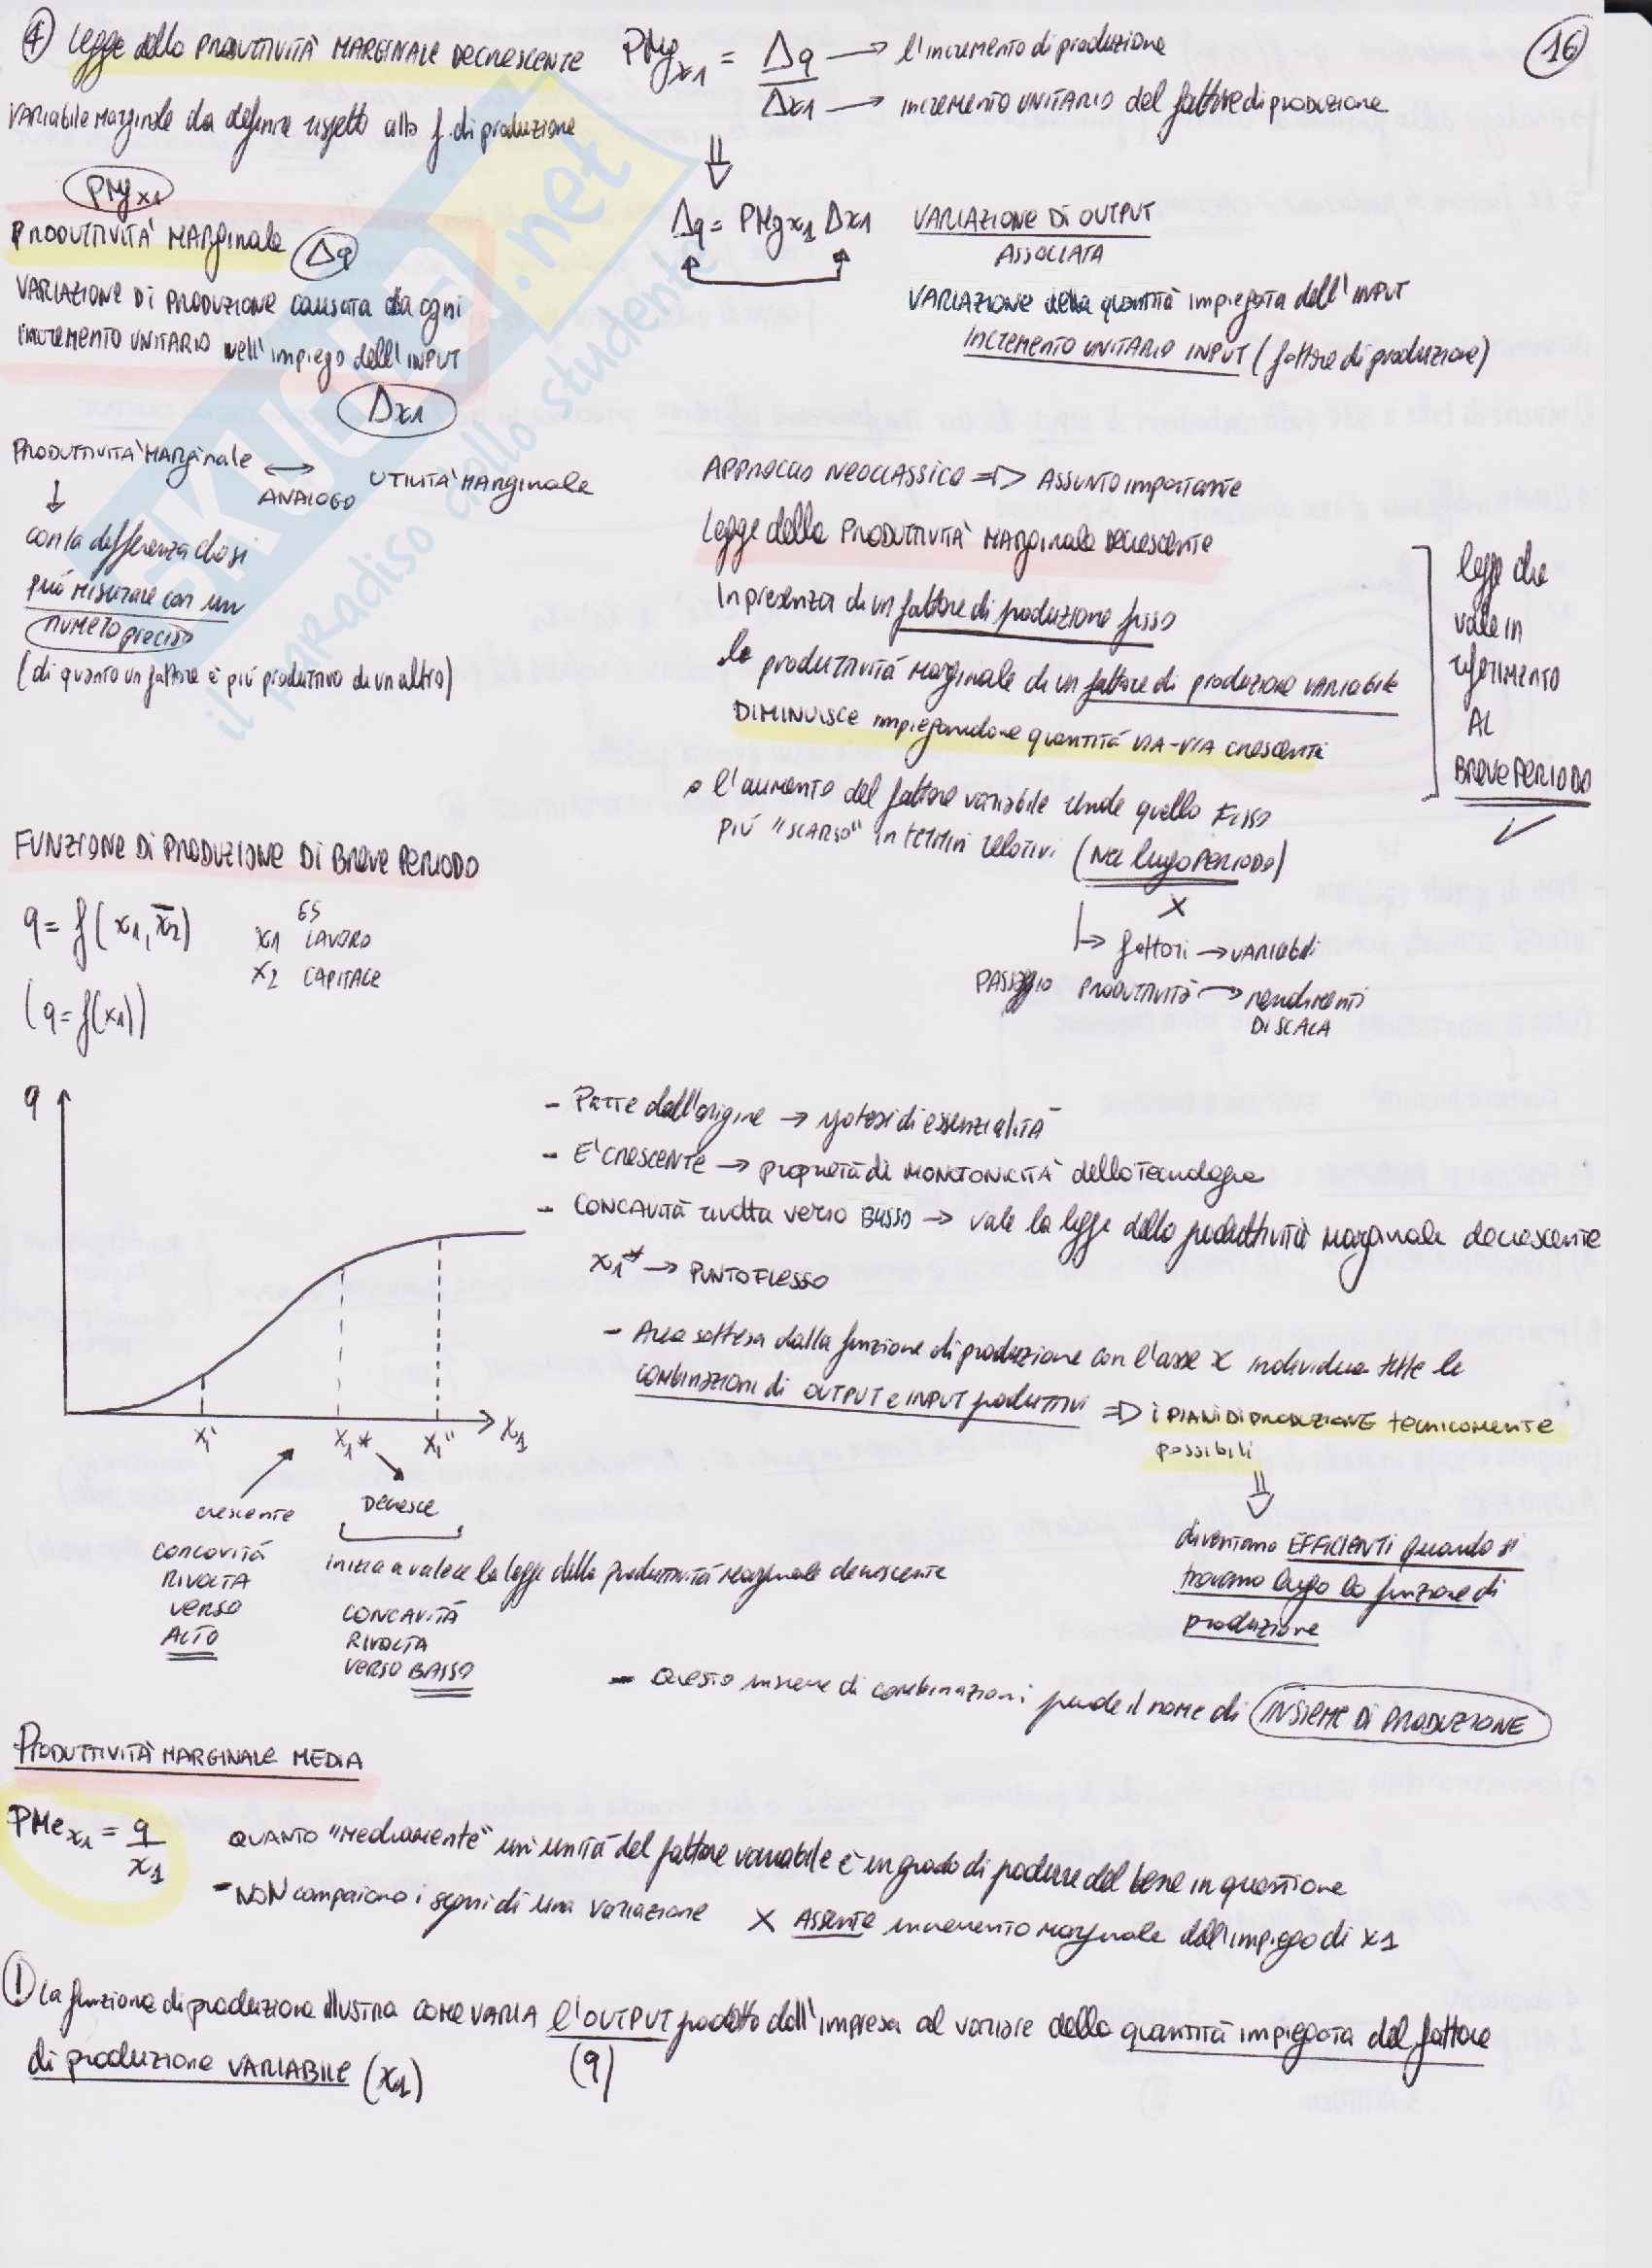 ④ legge della PRODUTTIVITÀ MARGINALE DECRESCENTE
PMg x1 = Δq → l'incremento di produzione
Δx1 → incremento UNITARIO del fattore di produzione
⑯
VARIABILE MARGINALE da definire rispetto alla f. di produzione
PMg x1
PRODUTTIVITÀ MARGINALE Δq
VARIAZIONE DI PRODUZIONE causata da ogni
INCREMENTO UNITARIO nell'impiego dell'INPUT
Δx1
⇓
Δq = PMg x1 Δx1
VARIAZIONE DI OUTPUT
ASSOCIATA
VARIAZIONE della quantità impiegata dell'INPUT
INCREMENTO UNITARIO INPUT (fattore di produzione)
PRODUTTIVITÀ MARGINALE ↔ UTILITÀ MARGINALE
ANALOGO
↓
con la differenza che si
può misurare con un
numero preciso
(di quanto un fattore è più produttivo di un altro)
APPROCCIO NEOCLASSICO ⇒ ASSUNTO importante
Legge della PRODUTTIVITÀ MARGINALE DECRESCENTE
In presenza di un fattore di produzione fisso
la produttività marginale di un fattore di produzione VARIABILE
DIMINUISCE impiegandone quantità VIA-VIA crescenti
l'aumento del fattore variabile rende quello FISSO
più "SCARSO" in termini relativi (NEL lungo PERIODO)
legge che
vale in
riferimento
AL
BREVE PERIODO
✓
X
↳ fattori → VARIABILI
PASSAGGIO PRODUTTIVITÀ → rendimenti
DI SCALA
FUNZIONE DI PRODUZIONE DI BREVE PERIODO
q = f(x1, x̄2)
ES
x1 LAVORO
x2 CAPITALE
(q = f(x1))
q
x1' x1* x1'' x1
crescente
CONCAVITÀ
RIVOLTA
VERSO
ALTO
Decresce
inizia a valere la legge della produttività marginale decrescente
CONCAVITÀ
RIVOLTA
VERSO BASSO
- PARTE dall'origine → ipotesi di essenzialità
- E' CRESCENTE → proprietà di MONOTONICITÀ della Tecnologia
- CONCAVITÀ rivolta verso BASSO → vale la legge della produttività marginale decrescente
x1* → PUNTO FLESSO
- Area sottesa dalla funzione di produzione con l'asse x individua tutte le
COMBINAZIONI di OUTPUT e INPUT produttivi ⇒ i PIANI DI PRODUZIONE tecnicamente
possibili
⇓
diventano EFFICIENTI quando si
trovano lungo la funzione di
produzione
- Questo insieme di combinazioni prende il nome di INSIEME DI PRODUZIONE
PRODUTTIVITÀ MARGINALE MEDIA
PMe x1 = q
x1
QUANTO "Mediamente" un'unità del fattore variabile è in grado di produrre del bene in questione
- NON compaiono i segni di una variazione X ASSENTE incremento marginale dell'impiego di x1
① La funzione di produzione illustra COME VARIA l'OUTPUT prodotto dall'impresa al variare della quantità impiegata del fattore
di produzione VARIABILE (x1)
(q)
SKUOLA.net
il paradiso dello studente